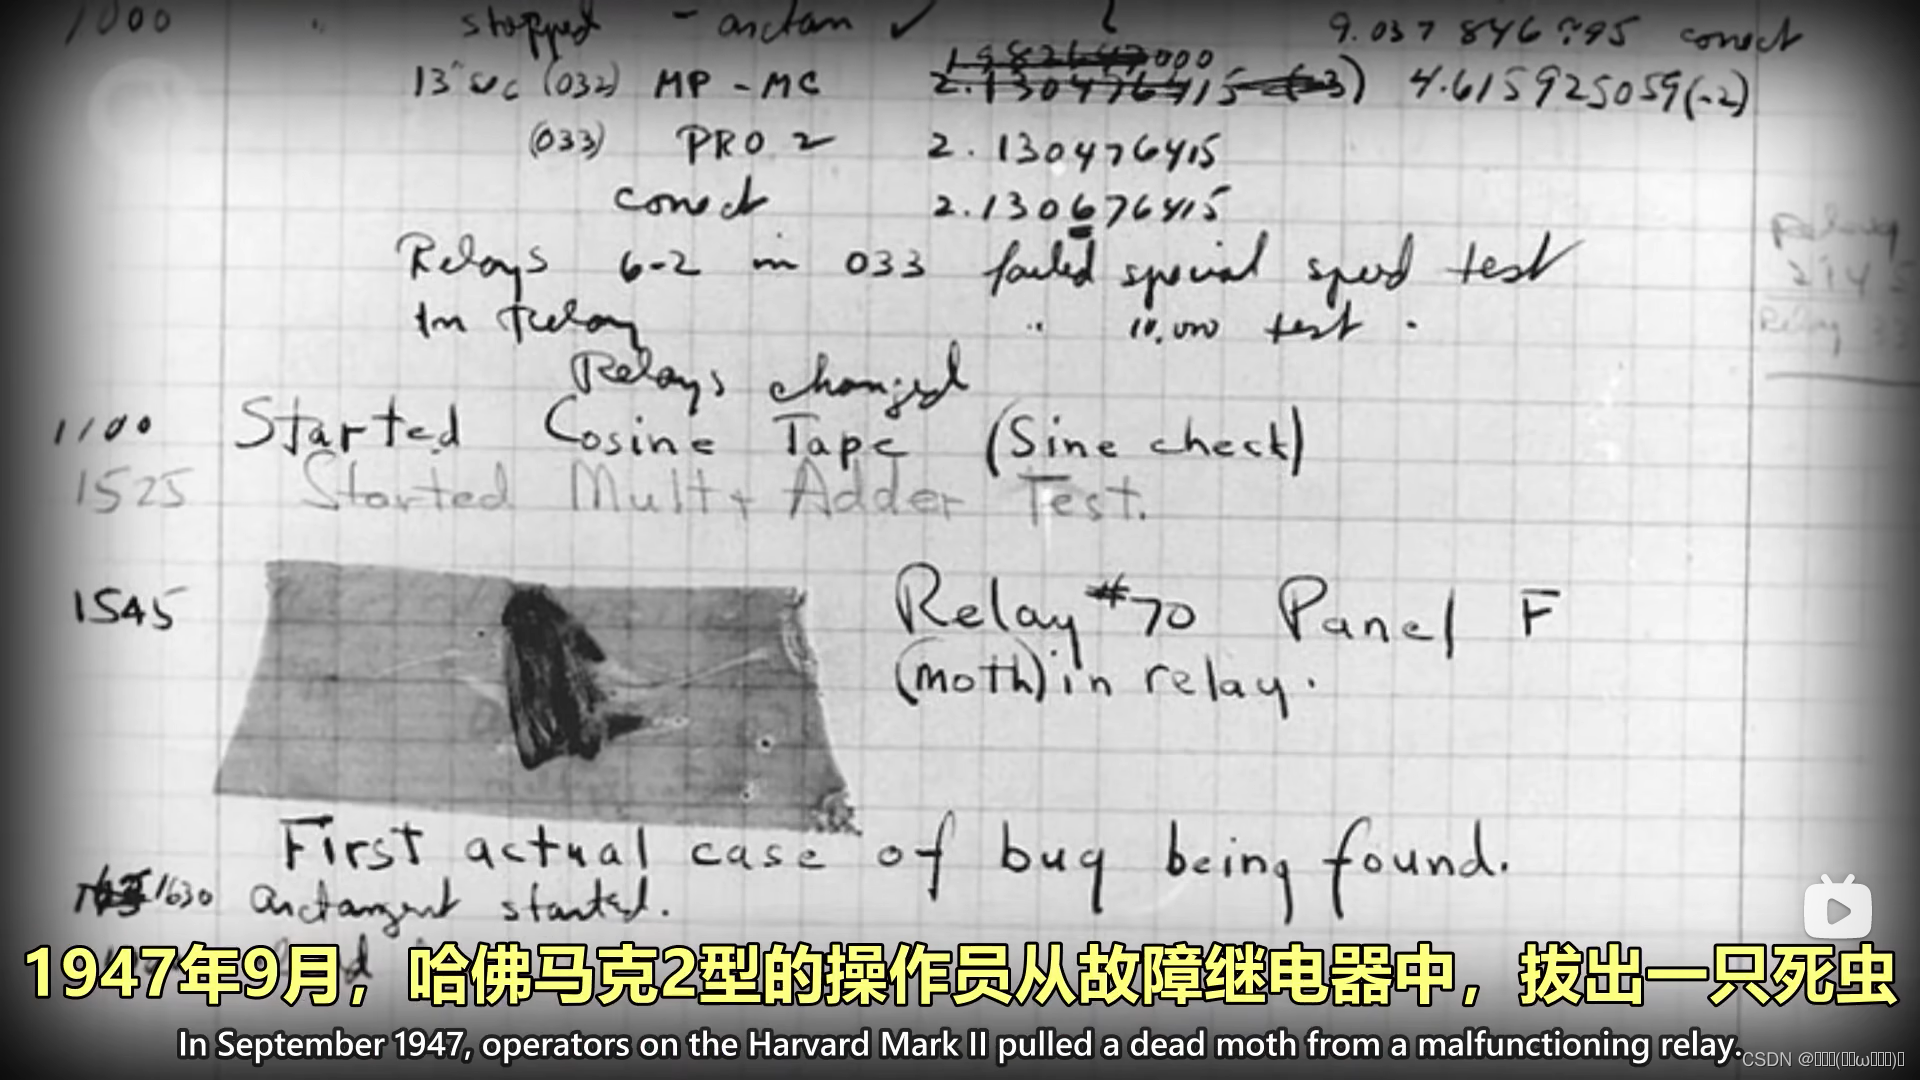 1000 " stopped - arctan ✓
9.037 846 795 conect
13"uc (032) MP - MC 1.982647000
2.130476415 (-3) 4.615925059(-2)
(033) PRO 2 2.130476415
conect 2.130676415
Relays 6-2 in 033 failed special speed test
In Relay " 10.000 test .
Relay
214
Relay 33
Relays changed
1100 Started Cosine Tape (Sine check)
1525 Started Mult + Adder Test.
1545 Relay #70 Panel F
(moth) in relay.
First actual case of bug being found.
1630 arctangent started.
1947年9月，哈佛马克2型的操作员从故障继电器中，拔出一只死虫
In September 1947, operators on the Harvard Mark II pulled a dead moth from a malfunctioning relay.
CSDN @